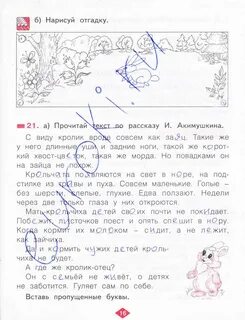 б) Нарисуй отгадку.
21. а) Прочитай текст по рассказу И. Акимушкина.
С виду кролик вроде совсем как заяц. Такие же
у него длинные уши и задние ноги, такой же короткий
хвост-цветок, такая же морда. Но повадками он
на зайца не похож.
Крольчата появляются на свет в норе, на под-
стилке из травы и пуха. Совсем маленькие. Голые –
без шерсти, слепые, глухие. Едва ползают. Недели
через две только глаза у них откроются.
Мать крольчиха детей своих почти не покидает.
Побежит, листочков поест и опять спешит в нору.
Когда кормит их молоком, он не стоит, а лежит, как
зайчиха.
Да и кормить чужих детей кроль-
чиха не будет.
А где же кролик-отец?
Он с семьёй не живёт, о детях
не заботится. Гуляет сам по себе.
Вставь пропущенные буквы.
16